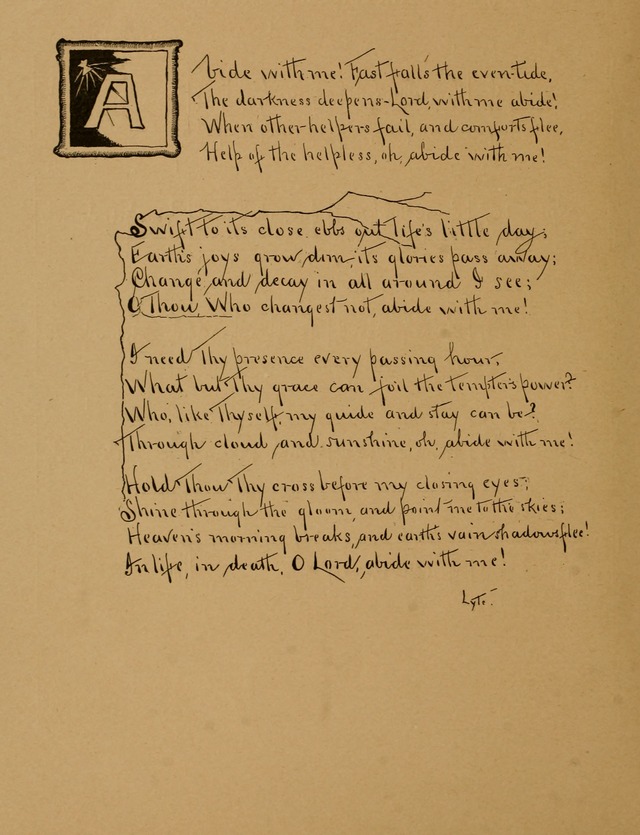 Abide with me! Fast falls the even-tide,
The darkness deepens—Lord, with me abide!
When other helpers fail, and comforts flee,
Help of the helpless, oh, abide with me!
Swift to its close ebbs out life's little day;
Earth's joys grow dim, its glories pass away;
Change and decay in all around I see;
O Thou Who changest not, abide with me!
I need Thy presence every passing hour,
What but Thy grace can foil the tempter's power?
Who, like Thyself, my guide and stay can be?
Through cloud and sunshine, oh, abide with me!
Hold Thou Thy cross before my closing eyes;
Shine through the gloom, and point me to the skies;
Heaven's morning breaks, and earth's vain shadows flee!
In life, in death, O Lord, abide with me!
Lyte.